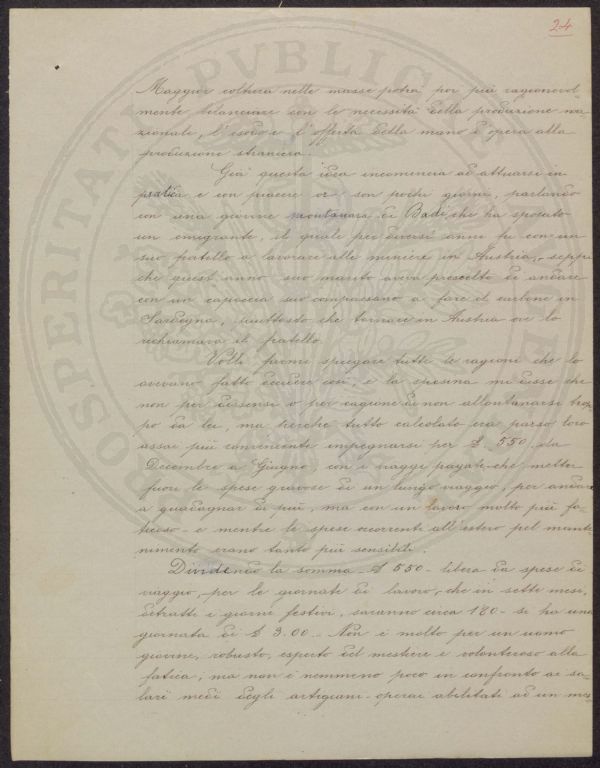 24
Maggior coltura nelle masse potrà poi più ragionevol-
mente bilanciare con le necessità della produzione na-
zionale, l'esodo e l'offerta della mano d'opera alla
produzione straniera.
Già questa idea incomincia ad attuarsi in
pratica e con piacere or son pochi giorni, parlando
con una giovine montanara di Badi, che ha sposato
un emigrante, il quale per diversi anni fu con un
suo fratello a lavorare alle miniere in Austria, seppi
che quest'anno suo marito aveva prescelto di andare
con un capoccia suo compaesano a fare il carbone in
Sardegna, piuttosto che tornare in Austria ove lo
richiamava il fratello.
Volli farmi spiegare tutte le ragioni che lo
avevano fatto decidere così, e la sposina mi disse che
non per dissensi o per cagione di non allontanarsi trop-
po da lei, ma perché tutto calcolato era parso loro
assai più conveniente impegnarsi per £ 550, da
Decembre a Giugno con i viaggi pagati che metter
fuori le spese gravose di un lungo viaggio, per andare
a guadagnar di più, ma con un lavoro molto più fa-
ticoso - e mentre le spese occorrenti all'estero pel mante-
nimento erano tanto più sensibili.
Dividendo la somma - £ 550 - libera da spese di
viaggio, per le giornate di lavoro, che in sette mesi,
detratti i giorni festivi, saranno circa 180 - si ha una
giornata di £ 3.00 - Non è molto per un uomo
giovine, robusto, esperto del mestiere e volonteroso alla
fatica, ma non è nemmeno poco in confronto ai sa-
lari medi degli artigiani-operai abilitati ad un mes-
PROSPERITATI PVBLICAE